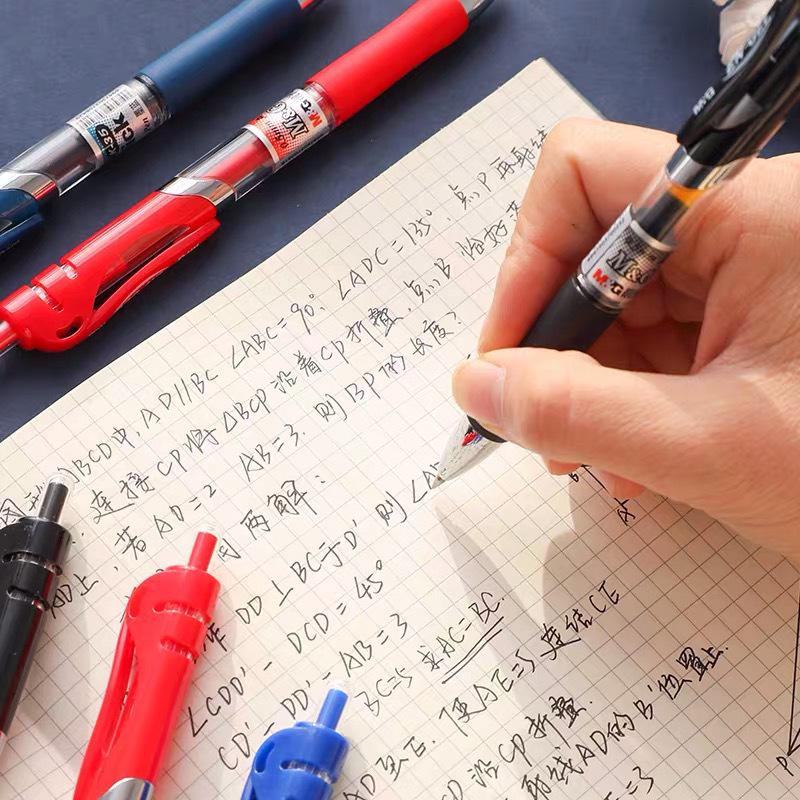 M&G
K-35
M&G
M&G
0.5mm
M&G
M&G
BCD中, AD//BC ∠ABC=90°. ∠ADC=135°, 点P
连接CP将△BCP沿着CP折叠, 点B恰好
AD上, 若AD=2 AB=3. 则BP的长度?
用两解:
DD'⊥BC于D' 则∠A
∠CDD'=DCD'=45°
CD'=DD'=AB=3
BC=5 求AC=BC.
AD至E. 使AE=5 连结CE
沿CP折叠.
射线AD的B'位置上.
P